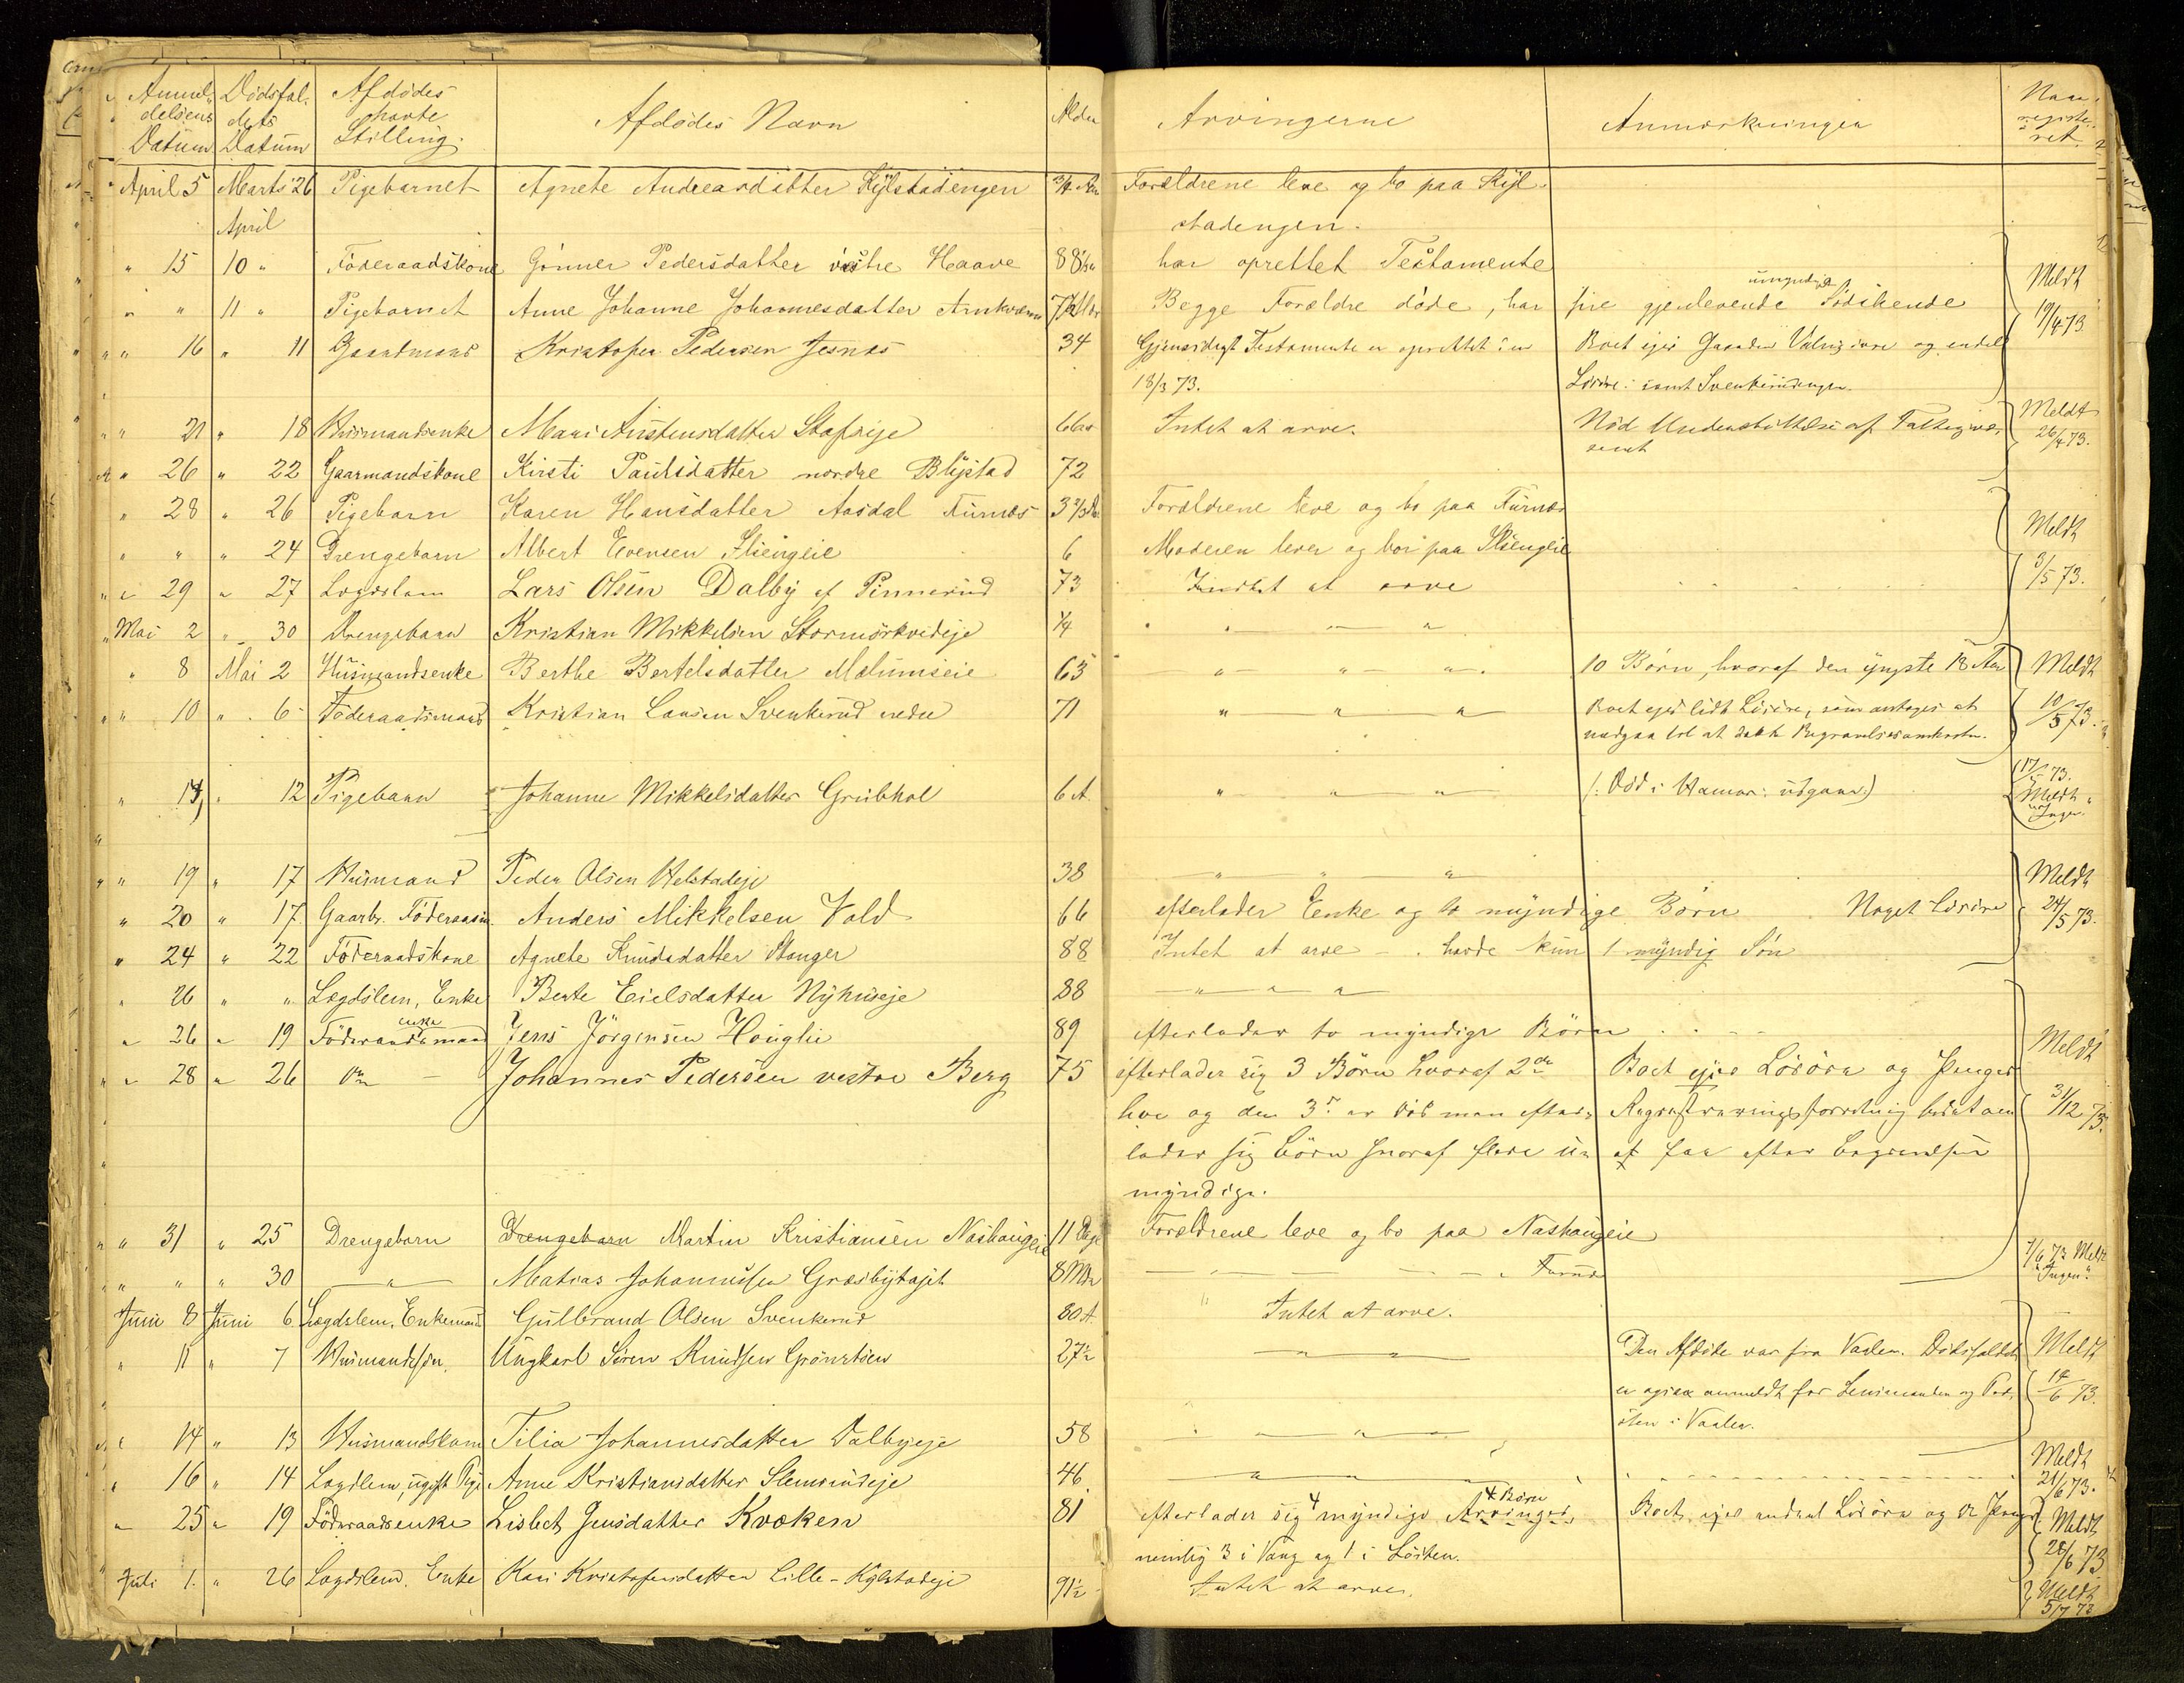 Anmel- delsens Datum Dødsfal- dets Datum Afdødes havte Stilling. Afdødes Navn Alder Arvingerne Anmærkninger Naar registe- ret
April 5 Marts 26 Pigebarnet Agnete Andreasdatter Kylstadengen 3/4 Aar Forældrene leve og bo paa Kyl-
April stadengen.
" 15 10 " Føderaadskone Gønner Pedersdatter vestre Haave 88 Aar har oprettet Testamente Meldt
" " 11 " Pigebarnet Anne Johanne Johannesdatter Arnkværn 7 1/2 Begge Forældre døde, har fire gjenlevende umyndige Sødskende 19/4 73
" 16 " 11 Gaardmand Kristofer Pedersen Jesnes 34 Gjensidigt Testamente er oprettet Boet ejer Gaarden og endel
18/3 73. Løsøre samt
" 21 " 18 Husmandsenke Mari Austensdatter Stafseje 66 Aar Intet at arve. Nød Understøttelse af Fattigvæ- Meldt
senet 26/4 73.
" 26 " 22 Gaarmandskone Kirsti Paulsdatter nordre Blystad 72
" 28 " 26 Pigebarn Karen Hansdatter Aasdal Furnes 3 2/3 Forældrene leve og bo paa Furnes Meldt
" " " 24 Drengebarn Albert Evensen Sliengeie 6 Moderen lever og bor paa Sliengeie 3/5 73.
" 29 " 27 Lægdslem Lars Olsen Dalby af Pinnerud 73 Intet at arve
" Mai 2 " 30 Drengebarn Kristian Mikkelsen Stormørkvedeje 1/4 " — "
" 8 Mai 2 Husmandsenke Berthe Bertelsdatter Malumseie 63 " — " — ". 10 Børn, hvoraf den yngste 18 Aar Meldt
" 10 " 6 Føderaadsmand Kristian Larsen Svenkerud nedre 71 " " " Boet ejer lidt Løsøre, som antages at 10/5 73.
medgaa til at dække Begravelsesomkostn.
" 17, " 12 Pigebarn Johanne Mikkelsdatter Grubhol 6 A. " " " (: Død i Hamar: udgaar:) 17/5 73. Meldt Ingen.
" 19 " 17 Husmand Peder Olsen Helstadeje 38 " " " Meldt
" 20 " 17 Gaarbr. Føderaadm. Anders Mikkelsen Vold 66 efterlader Enke og to myndige Børn Noget Løsøre 24/5 73.
" 24 " 22 Føderaadskone Agnete Knudsdatter Stanger 88 Intet at arve - . havde kun 1 myndig Søn
" 26 " " Lægdslem, Enke Berte Eielsdatter Nyhuseje 88 " " "
" 26 " 19 Føderaadsenkemand Jens Jörgensen Houglie 89 efterlader to myndige Børn Meldt
" 28 " 26 Do — Johannes Pedersen vestre Berg 75 efterlader sig 3 Børn hvoraf 2de Boet ejer Løsöre og Penge
leve og den 3die er död men efter- Registreringsforretning bedes om 31/12 73.
lader sig Börn hvoraf flere u- at faa efter Begravelsen
myndige.
" " 31 " 25 Drengebarn Drengebarn Martin Kristiansen Nashaugeie 11 Dage Forældrene leve og bo paa Nashaugeie
" " " 30 — " — Matias Johannessen Græsbytajet 8 Mdr — — — " Furnes 7/6 73 Meldt "Ingen".
Juni 8 Juni 6 Lægdslem, Enkemand Gulbrand Olsen Svenkerud 80 A. Intet at arve.
" 11 " 7 Husmandssøn. Ungkarl Søren Knudsen Grønstien 27 1/2 — " — " — Den Afdøde var fra Vaaler. Dødsfaldet Meldt
er ogsaa anmeldt for Lensmanden og Præ- 14/6 73.
sten i Vaaler.
" 14 " 13 Husmandskone Tilia Johannesdatter Dalbyeje 58 " — " —
" 16 " 14 Lægdslem, ugift Pige Anne Kristiansdatter Slemsrudeje 46. — " — " — " Meldt 21/6 73.
" 25 " 19 Föderaadsenke Lisbet Jensdatter Kvæken 81 efterlader sig 4 myndige Arvinger, 4 Børn Boet ejer endeel Løsöre og Penge Meldt
nemlig 3 i Vang og 1 i Løiten. 28/6 73
Juli 1. " 26 Lægdslem. Enke Kari Kristofersdatter Lille-Kylstadeje 91 1/2 Intet at arve. Meldt 5/7 73